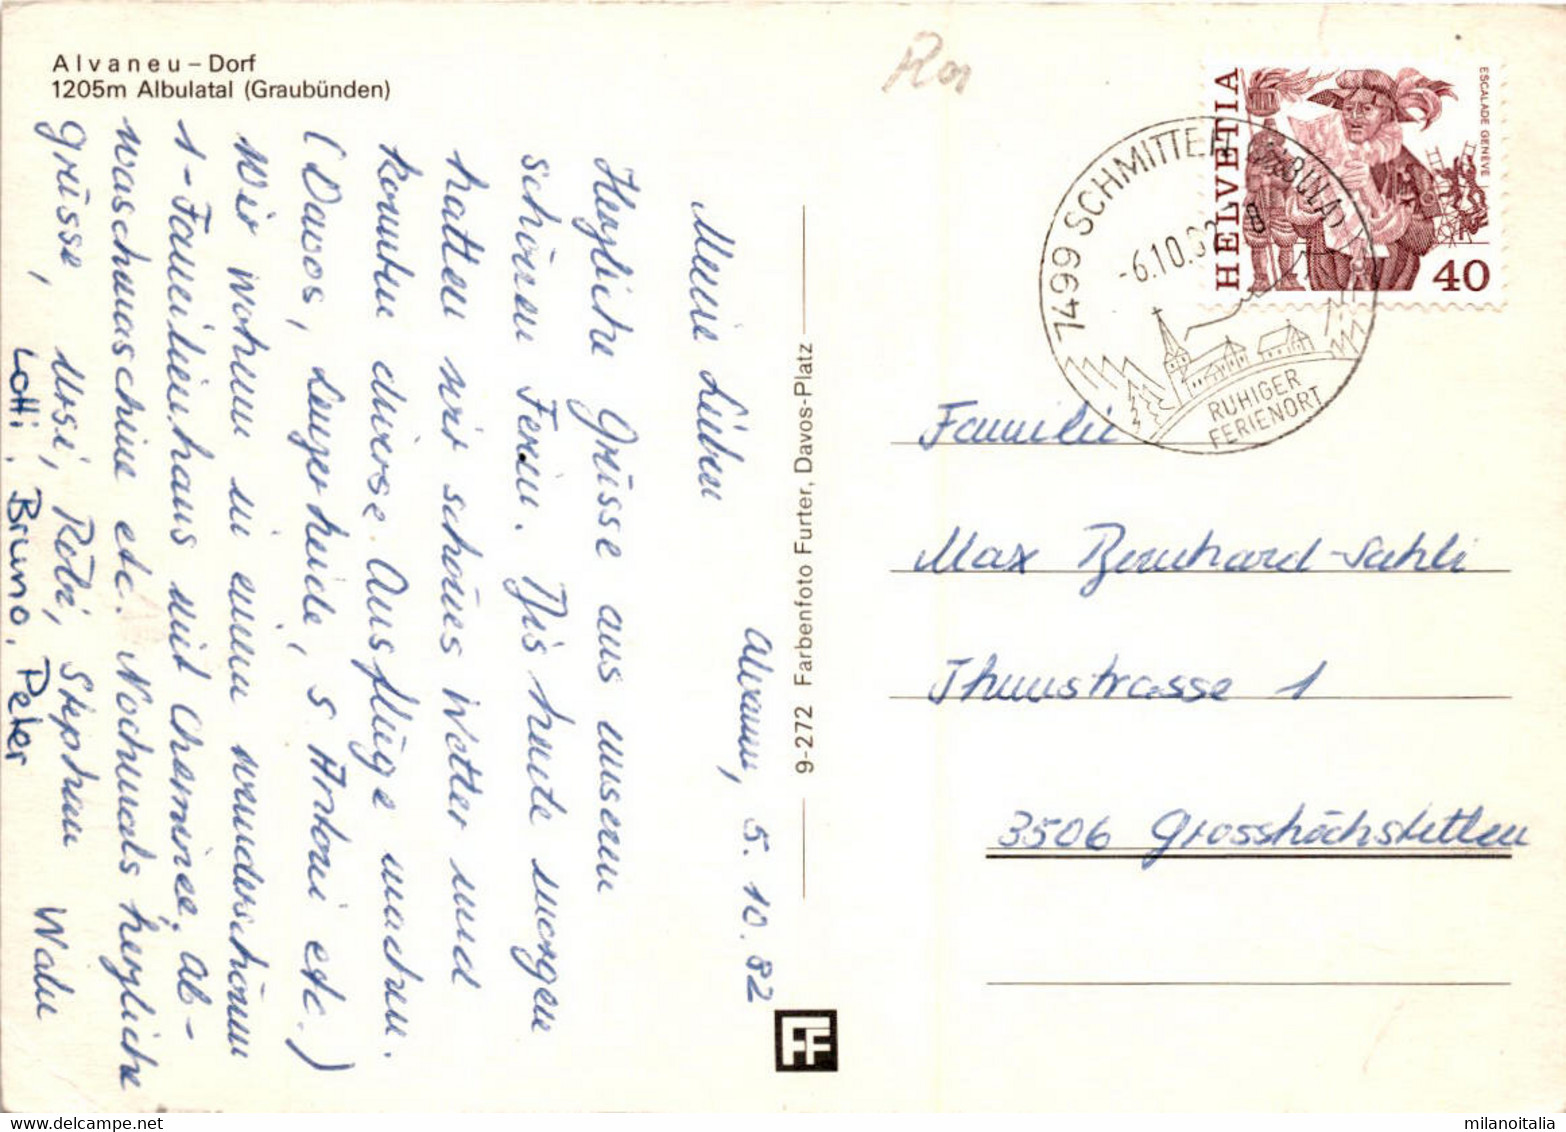 Alvaneu – Dorf
1205m Albulatal (Graubünden)
Alvaneu, 5.10.82
Meine Lieben
Herzliche Grüsse aus unseren
schönen Ferien. Bis heute morgen
hatten wir schönes Wetter und
konnten diverse Ausflüge machen.
(Davos, Lenzerheide, S Antoni etc.)
Wir wohnen in einem wunderschönen
1-Familienhaus mit Cheminée, Ab-
waschmaschine etc. Nochmals herzliche
Grüsse, Ursi, Robi, Stephan
Lotti, Bruno, Peter
9-272 Farbenfoto Furter, Davos-Platz
FF
HELVETIA
ESCALADE GENÈVE
40
7499 SCHMITTEN (ALBULA)
-6.10.82 - 8
RUHIGER
FERIENORT
Familie
Max Bernhard-Sahli
Thunstrasse 1
3506 Grosshöchstetten
milanoitalia